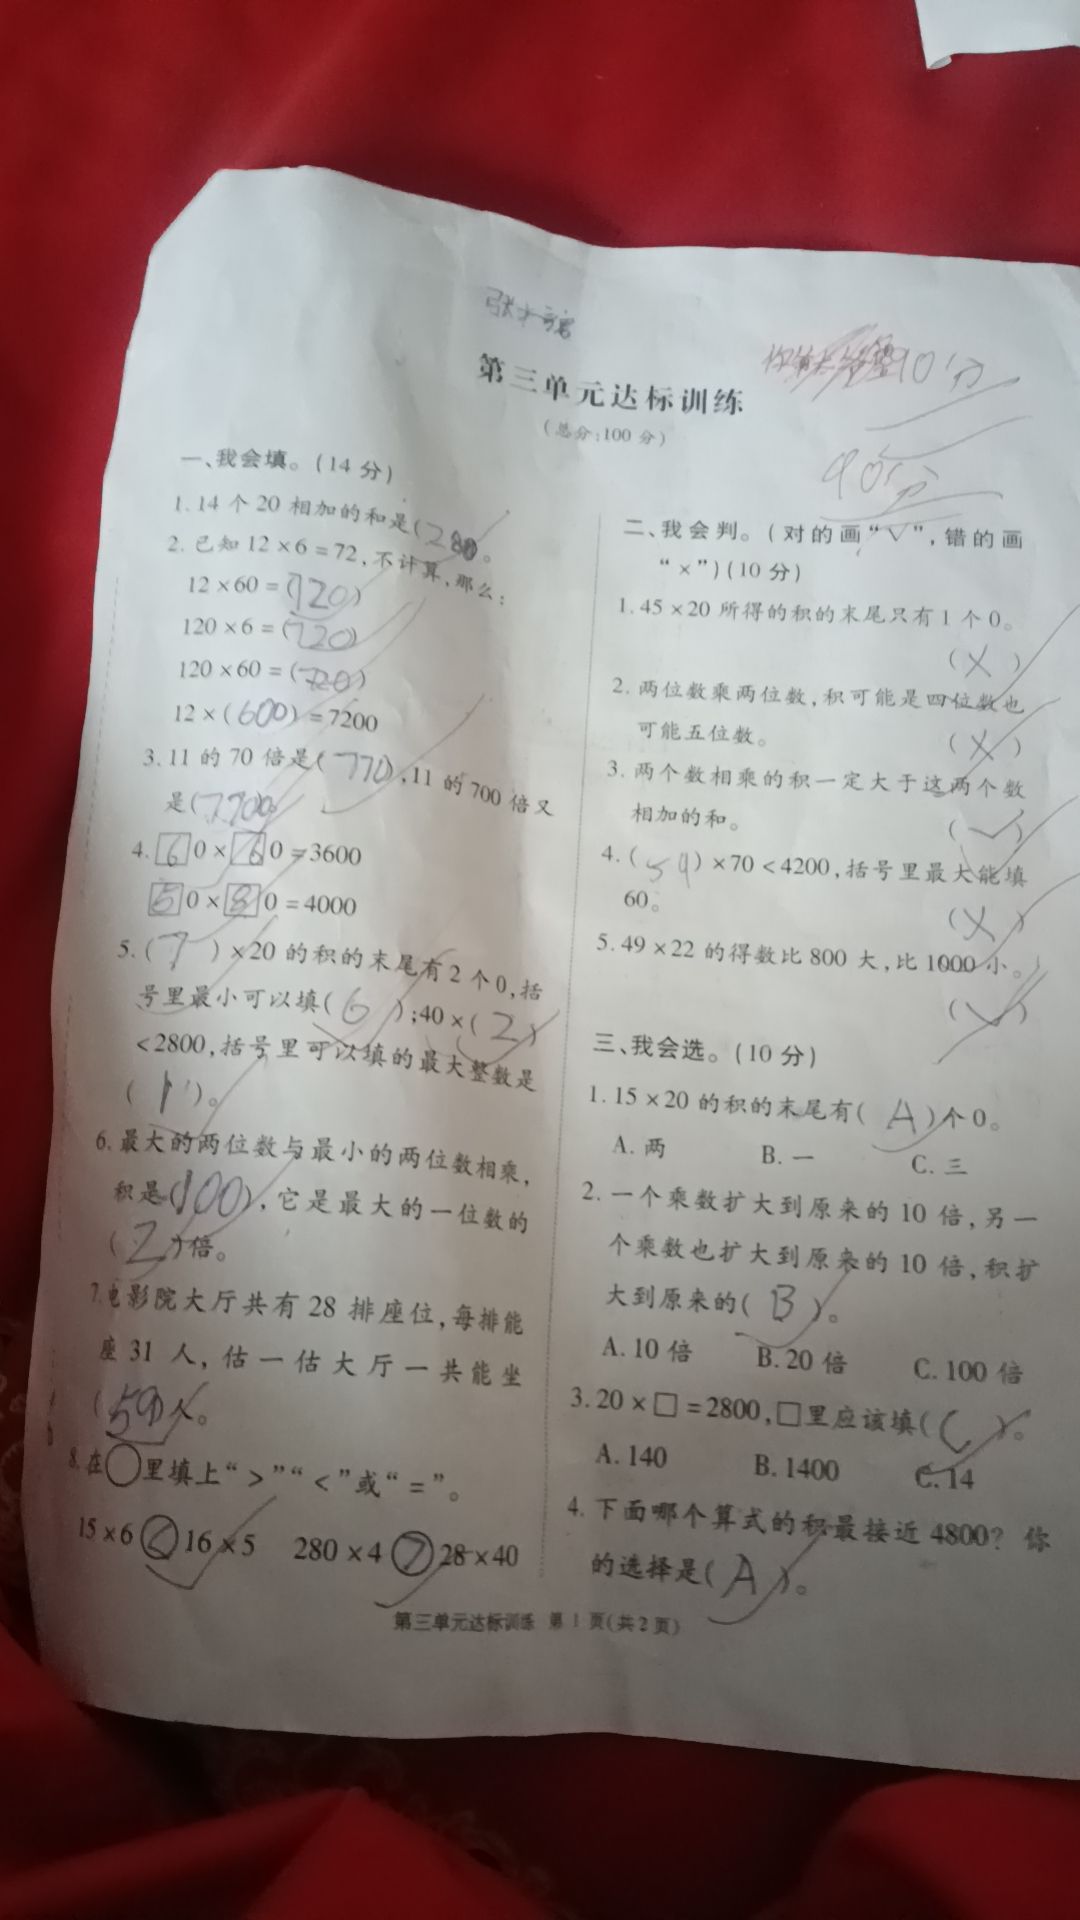 90分
第三单元达标训练
(总分:100分)
90分
一、我会填。(14分)
1.14个20相加的和是(280。
2.已知12×6=72,不计算,那么:
12×60=(720)
120×6=(720)
120×60=(720)
12×(600)=7200
3.11的70倍是(770),11的700倍又
是(7700
4.60×60=3600
50×80=4000
5.(7)×20的积的末尾有2个0,括
号里最小可以填(6);40×(2)
<2800,括号里可以填的最大整数是
(1)。
6.最大的两位数与最小的两位数相乘,
积是(100),它是最大的一位数的
(2)倍。
7.电影院大厅共有28排座位,每排能
座31人,估一估大厅一共能坐
(59)人。
8.在○里填上“>”“<”或“=”。
15×6<16×5 280×4>28×40
二、我会判。(对的画“√”,错的画
“×”)(10分)
1.45×20所得的积的末尾只有1个0。
(×)
2.两位数乘两位数,积可能是四位数也
可能五位数。
(×)
3.两个数相乘的积一定大于这两个数
相加的和。
(√)
4.(59)×70<4200,括号里最大能填
60。
(×)
5.49×22的得数比800大,比1000小。
(√)
三、我会选。(10分)
1.15×20的积的末尾有(A)个0。
A.两 B.一 C.三
2.一个乘数扩大到原来的10倍,另一
个乘数也扩大到原来的10倍,积扩
大到原来的(B)。
A.10倍 B.20倍 C.100倍
3.20×□=2800,□里应该填(C)。
A.140 B.1400 C.14
4.下面哪个算式的积最接近4800?你
的选择是(A)。
第三单元达标训练 第1页(共2页)